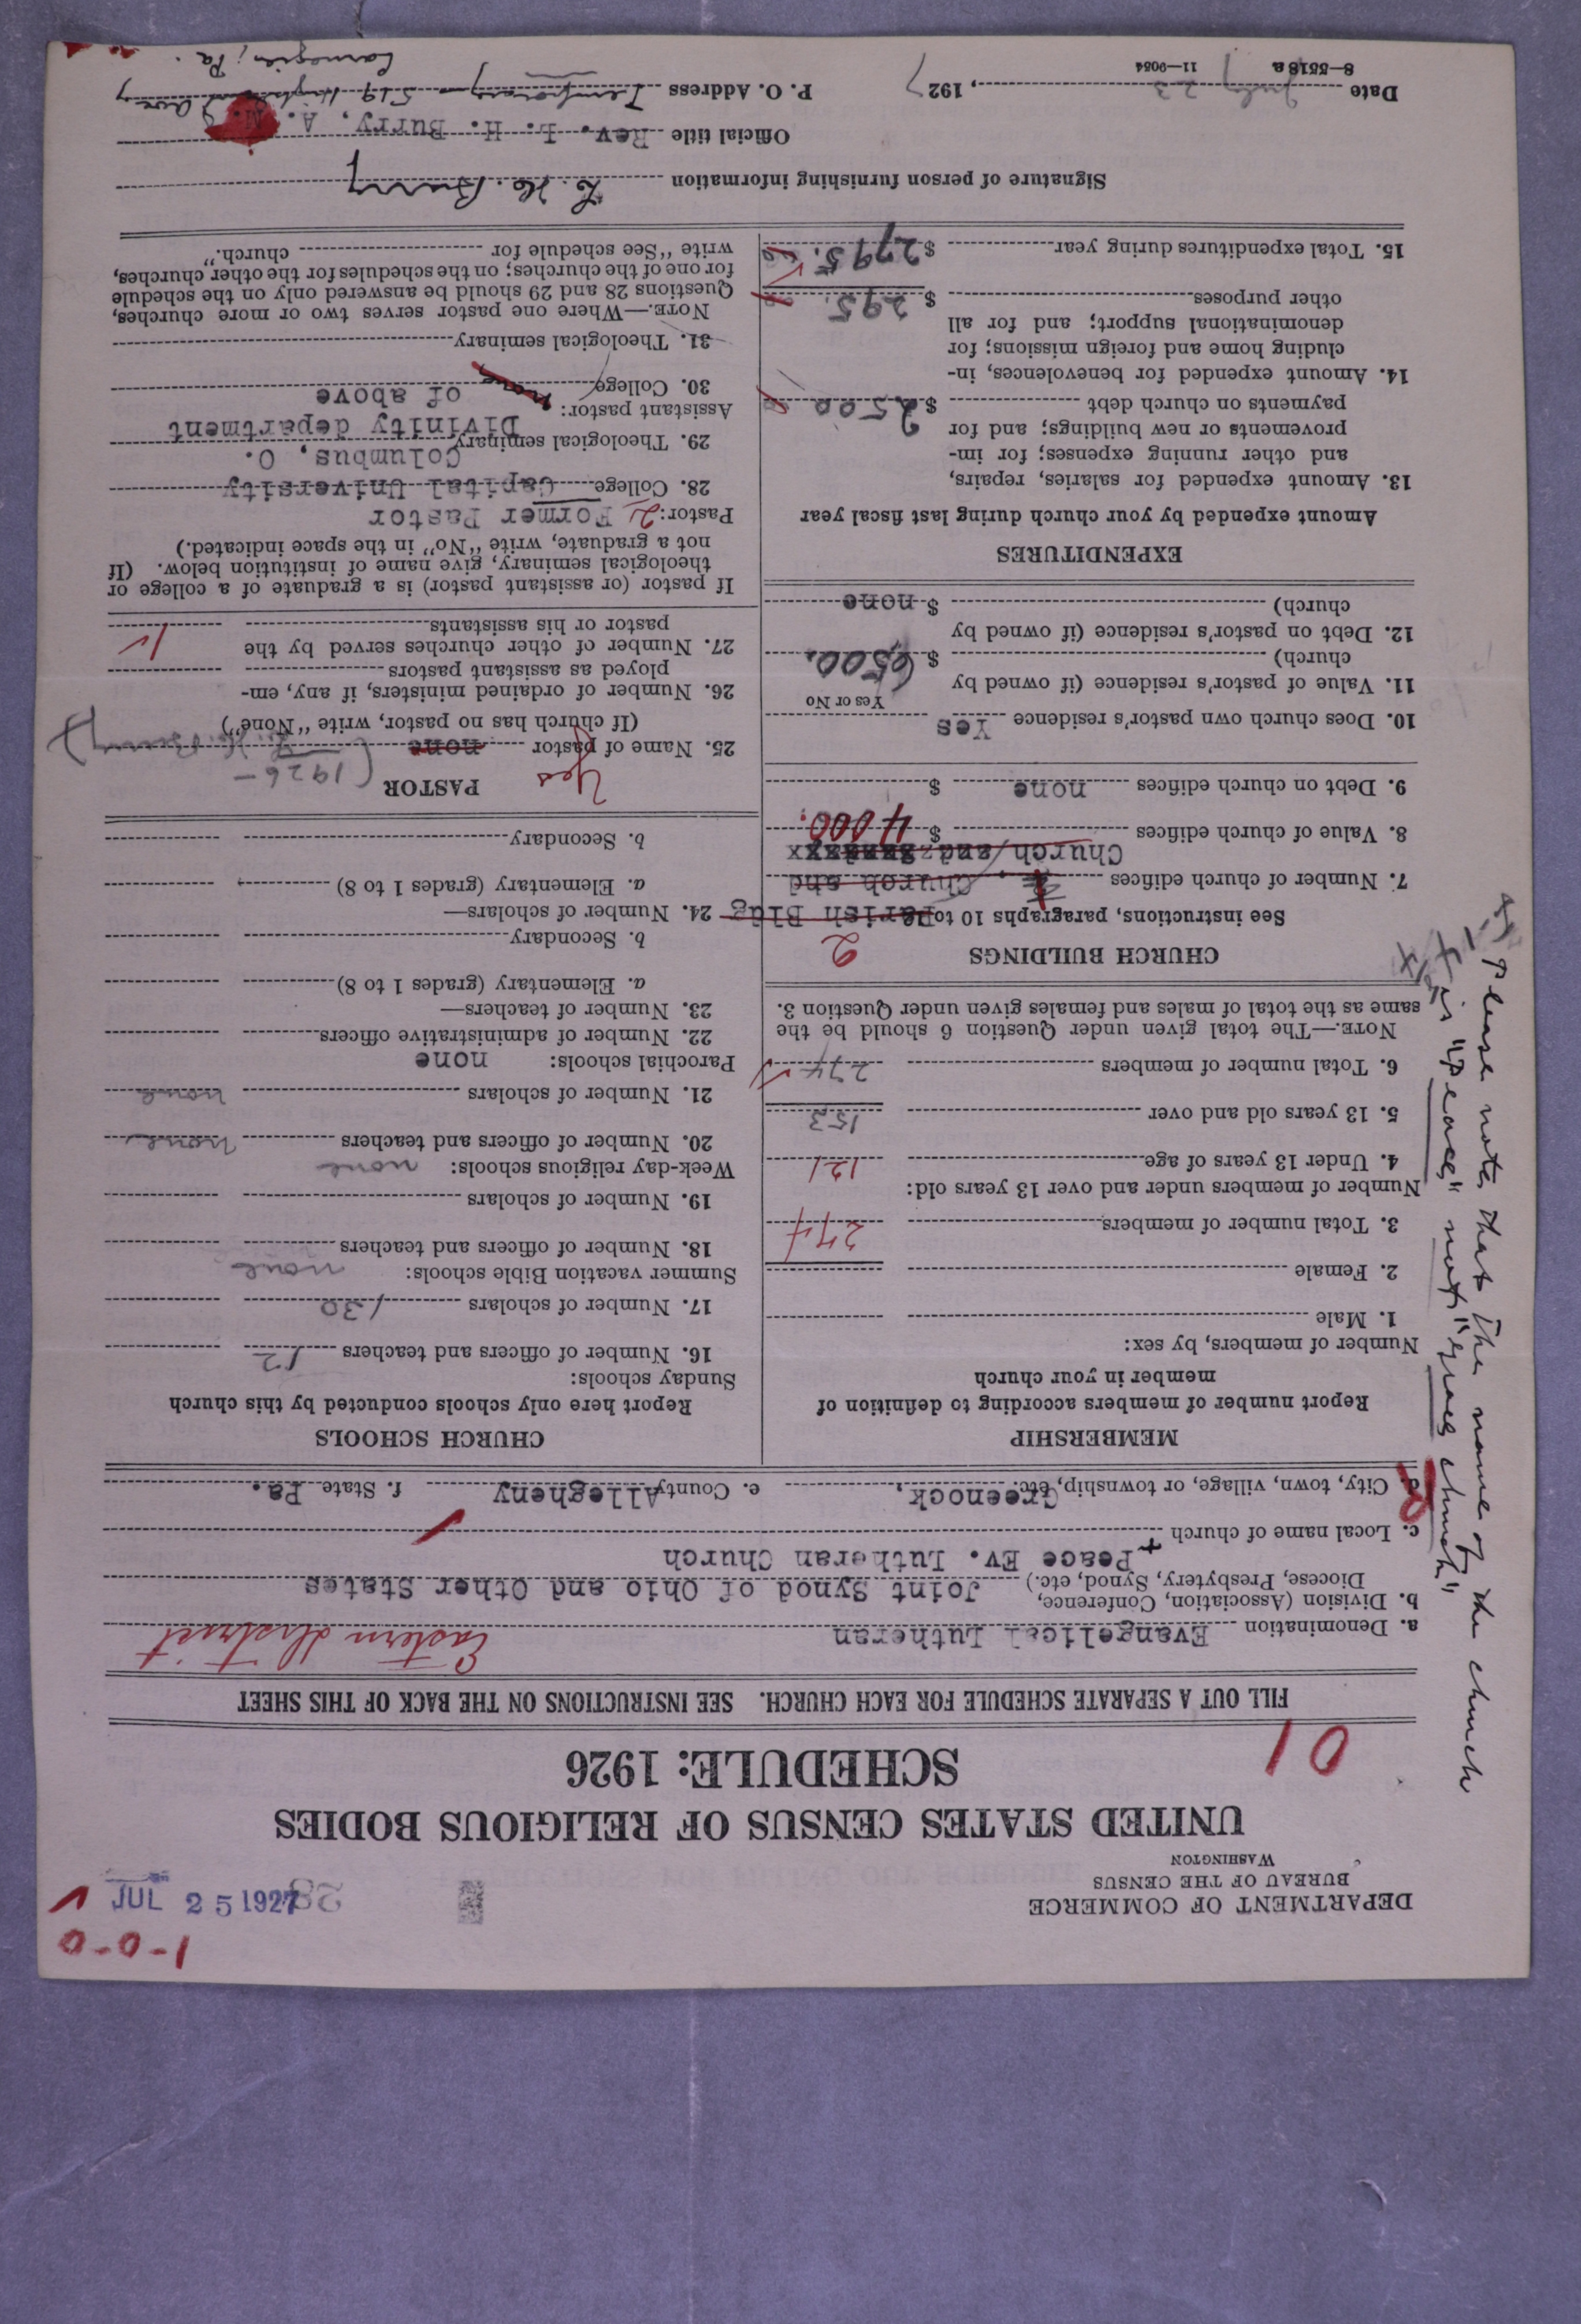 1-0-0
DEPARTMENT OF COMMERCE
BUREAU OF THE CENSUS
WASHINGTON
JUL 25 1927
28
UNITED STATES CENSUS OF RELIGIOUS BODIES
SCHEDULE: 1926
01
FILL OUT A SEPARATE SCHEDULE FOR EACH CHURCH. SEE INSTRUCTIONS ON THE BACK OF THIS SHEET
a. Denomination Evangelical Lutheran Eastern district
b. Division (Association, Conference, Diocese, Presbytery, Synod, etc.) Joint Synod of Ohio and Other States
+Peace Ev. Lutheran Church
c. Local name of church
d. City, town, village, or township, etc. Greenock, e. County Allegheny f. State Pa.
MEMBERSHIP
Report number of members according to definition of
member in your church
Number of members, by sex:
1. Male
2. Female
3. Total number of members 274
Number of members under and over 13 years old:
4. Under 13 years of age 121
5. 13 years old and over 153
6. Total number of members 274
NOTE.—The total given under Question 6 should be the
same as the total of males and females given under Question 3.
CHURCH BUILDINGS
2
See instructions, paragraphs 10 to
Parish Bldg
7. Number of church edifices Church and
Church and
8. Value of church edifices $ 4000.
9. Debt on church edifices none $
10. Does church own pastor's residence Yes
Yes or No
11. Value of pastor's residence (if owned by
church) $ 6500.
12. Debt on pastor's residence (if owned by
church) $ none
EXPENDITURES
Amount expended by your church during last fiscal year
13. Amount expended for salaries, repairs,
and other running expenses; for im-
provements or new buildings; and for
payments on church debt $ 2500
14. Amount expended for benevolences, in-
cluding home and foreign missions; for
denominational support; and for all
other purposes $ 295.
15. Total expenditures during year $ 2795.
CHURCH SCHOOLS
Report here only schools conducted by this church
Sunday schools:
16. Number of officers and teachers 12
17. Number of scholars 130
Summer vacation Bible schools: none
18. Number of officers and teachers
19. Number of scholars
Week-day religious schools: none
20. Number of officers and teachers none
21. Number of scholars none
Parochial schools: none
22. Number of administrative officers
23. Number of teachers—
a. Elementary (grades 1 to 8)
b. Secondary
24. Number of scholars—
a. Elementary (grades 1 to 8)
b. Secondary
PASTOR
Yes
(1926—
25. Name of pastor none L. H. Burry)
(If church has no pastor, write "None")
26. Number of ordained ministers, if any, em-
ployed as assistant pastors
27. Number of other churches served by the
pastor or his assistants 1
If pastor (or assistant pastor) is a graduate of a college or
theological seminary, give name of institution below. (If
not a graduate, write "No" in the space indicated.)
Pastor: 2 Former Pastor
28. College Capital University
Columbus, O.
29. Theological seminary Divinity department
of above
Assistant pastor: none
30. College
31. Theological seminary
NOTE.—Where one pastor serves two or more churches,
Questions 28 and 29 should be answered only on the schedule
for one of the churches; on the schedules for the other churches,
write "See schedule for church."
Signature of person furnishing information L. H. Burry
Official title Rev. L. H. Burry, A. M.
P. O. Address Temporary - 519 Highland Ave
Carnegie, Pa.
Date July 23, 1927
8—5518a 11—9054
+ Please note that the name of the church
is "Peace" not "Grace church"